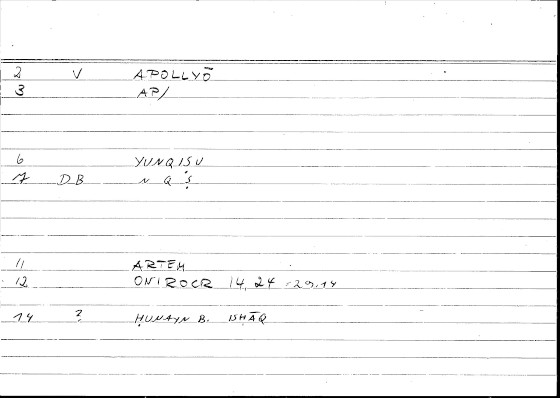 2 V APOLLYŌ
3 AP/
6 YUNQISU
7 DB N Q Ṣ̌
11 ARTEM
12 ONIROCR 14, 24 -29.14
14 ? ḤUNAYN B. ISḤĀQ